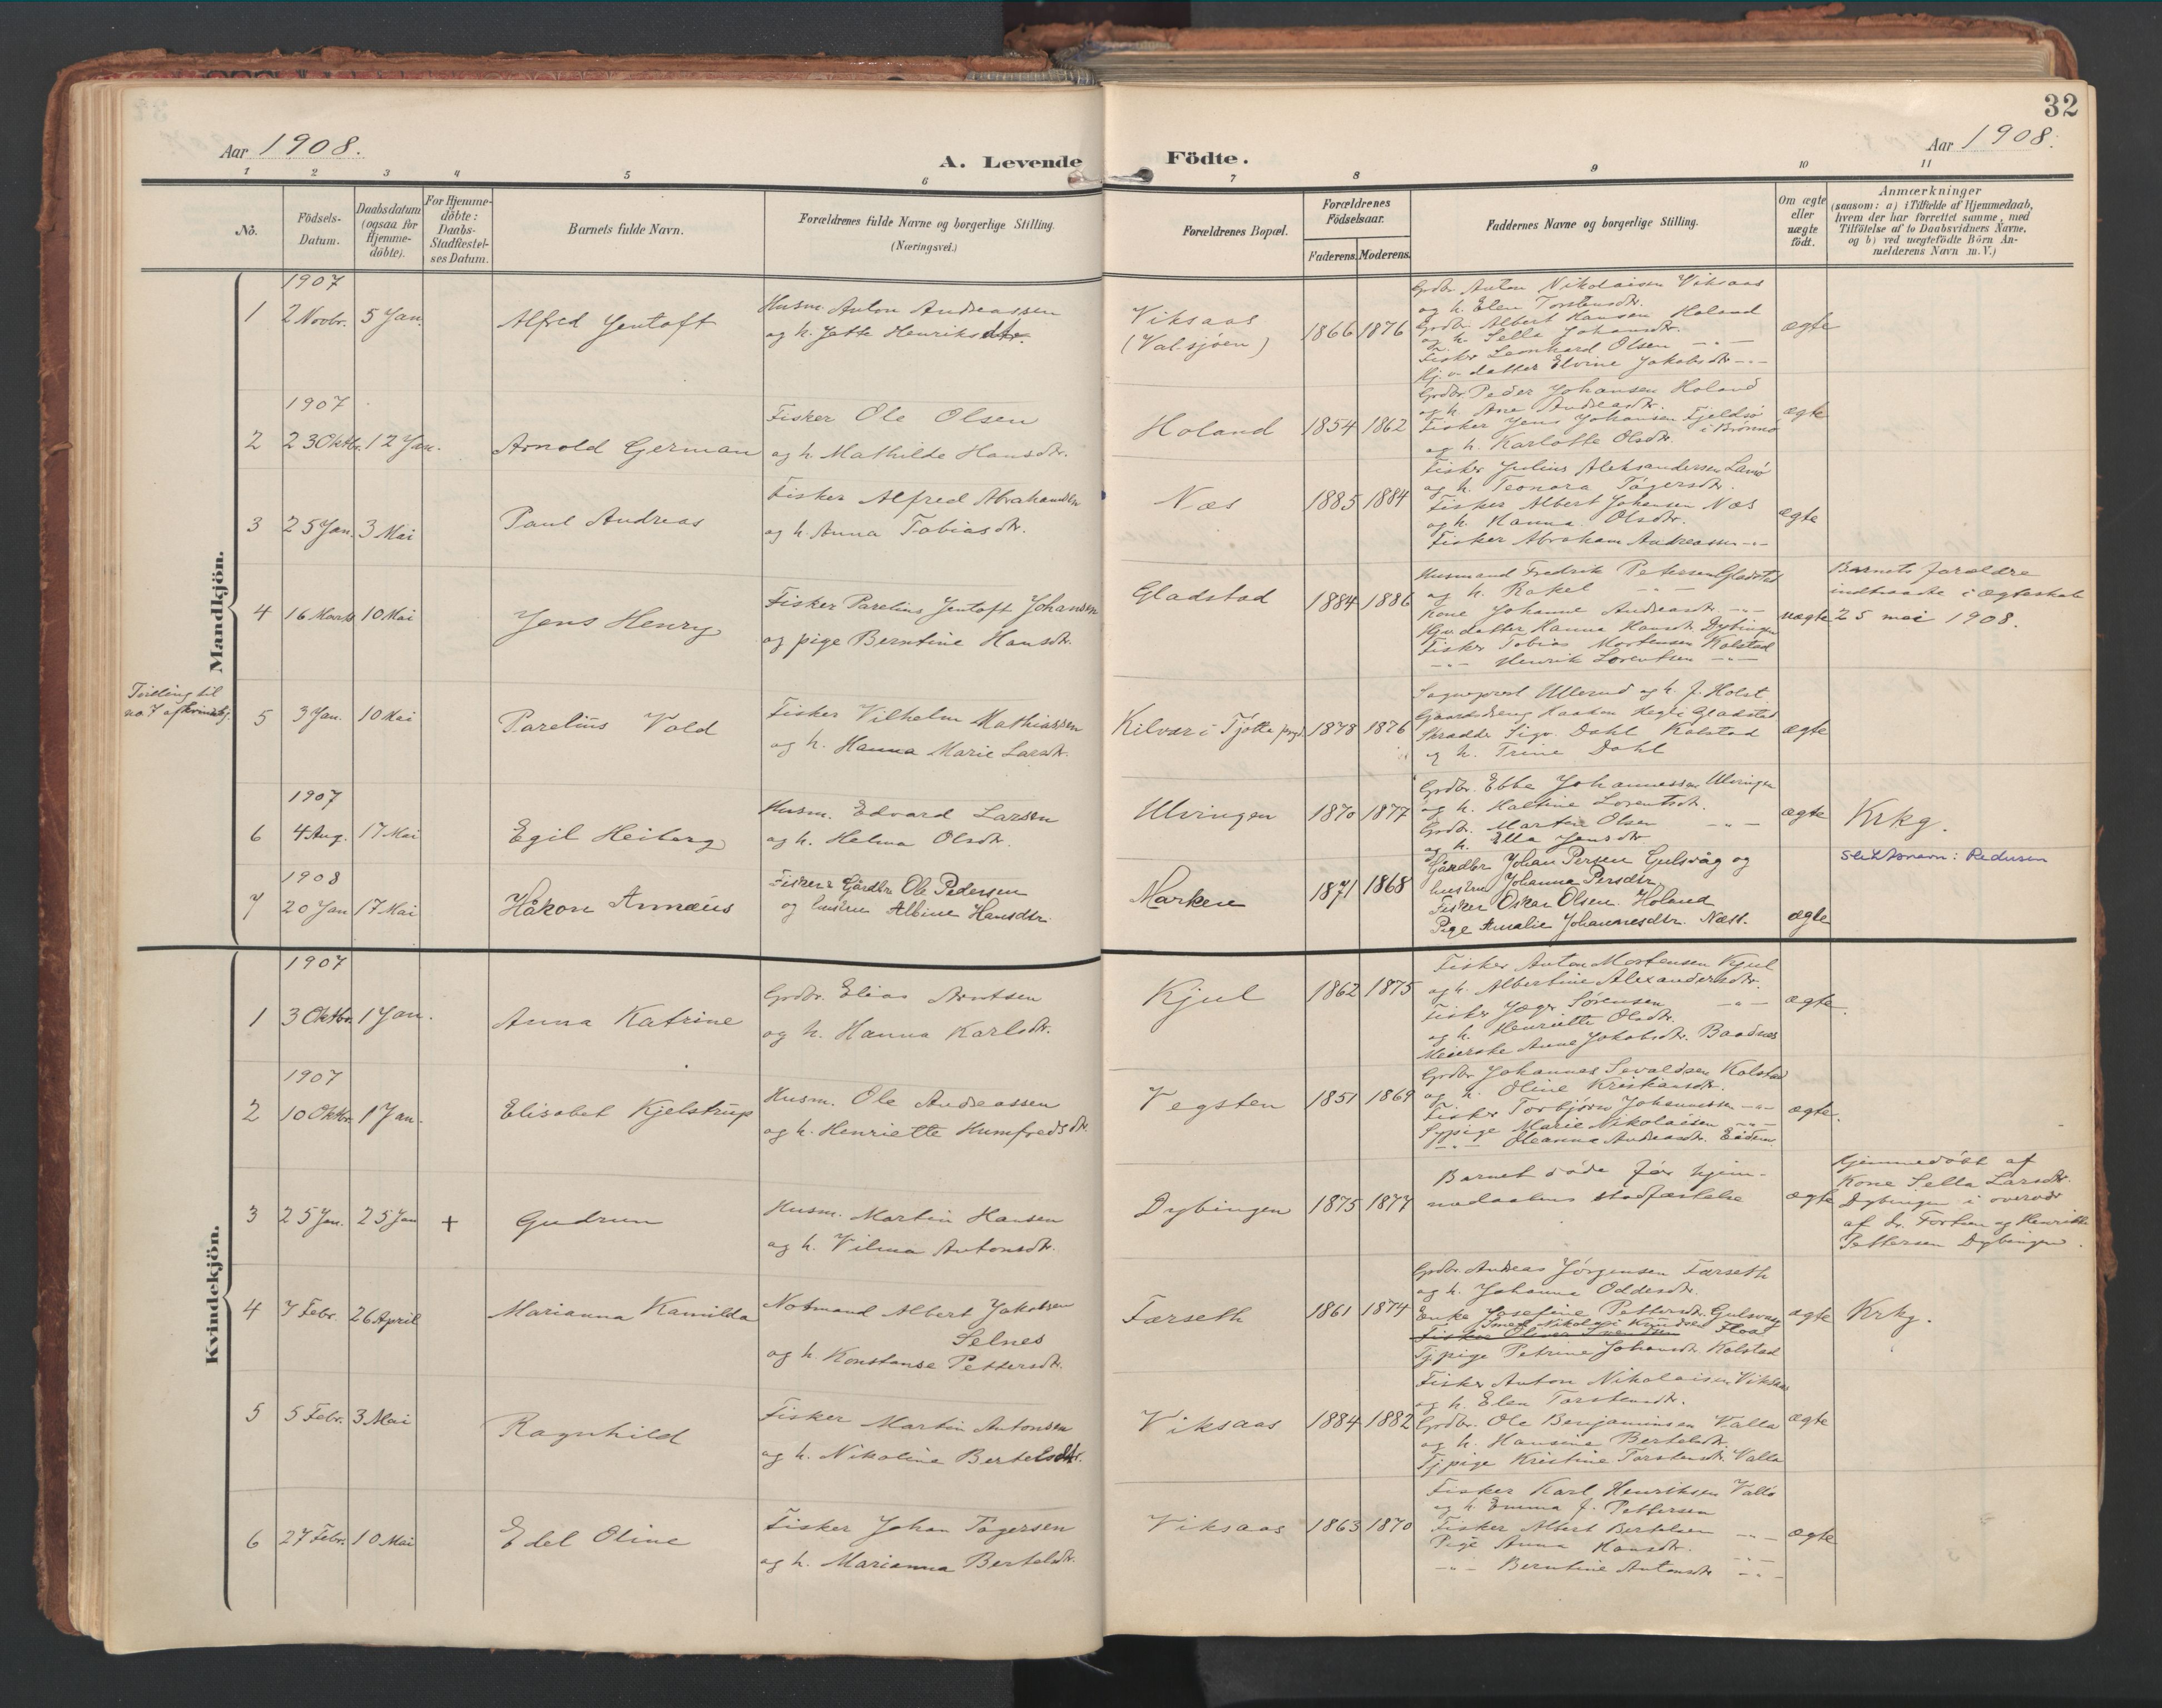 32
Aar 1908.
A. Levende Födte.
Aar 1908.
1 2 3 4 5 6 7 8 9 10 11
Nô.
Födsels-
Datum.
Daabsdatum
(ogsaa for
Hjemme-
döbte).
For Hjemme-
döbte:
Daabs-
Stadfæstel-
ses Datum.
Barnets fulde Navn.
Forældrenes fulde Navne og borgerlige Stilling.
(Næringsvei.)
Forældrenes Bopæl.
Forældrenes
Födselsaar.
Faderens. Moderens.
Faddernes Navne og borgerlige Stilling.
Om ægte
eller
uægte
födt.
Anmærkninger
(saasom: a) i Tilfælde af Hjemmedaab,
hvem der har forrettet samme, med
Tilföielse af to Daabsvidners Navne,
og b) ved uægtefödte Börn An-
melderens Navn m. V.)
Mandkjön.
1907
1 2 Novbr. 5 Jan. Alfred Jentoft
Husm. Anton Andreassen
og h. Jette Henriksdtr.
Viksaas
(Valsjøen)
1866 1876
Grdbr. Anton Nikolaisen Viksaas
og h. Elen Torstensdtr.
Grdbr. Albert Hansen Holand
og h. Sella Johansdtr.
Fisker Leonhard Olsen -"-
Hj.v. datter Elvine Jakobsdtr -"-
ægte
1907
2 23 Oktbr. 12 Jan. Arnold German
Fisker Ole Olsen
og h. Mathilde Hansdtr.
Holand
1854 1862
Grdbr. Peder Johansen Holand
og h. Ane Andreasdtr.
Fisker Jens Johansen Fjeldsø
i Brønnø
og h. Karlotte Olsdtr.
ægte
3 25 Jan. 3 Mai Paul Andreas
Fisker Alfred Abrahamsen
og h. Anna Tobiasdtr.
Næs
1885 1884
Fisker Julius Aleksandersen
og h. Teonora Tögersdtr.
Fisker Albert Johansen Næs
og h. Hanna Olsdtr.
Fisker Abraham Andreassen -"-
ægte
4 16 Marts 10 Mai Jens Henry
Fisker Parelius Jentoft Johansen
og pige Berntine Hansdtr.
Gladstad
1884 1886
Husmand Fredrik Petersen Gladstad
og h. Rakel -"-
Kone Johanne Andreasdtr. -"-
Hjv. datter Hanna Hansdtr. Dybingen
Fisker Tobias Mortensen Kolstad
-"- Henrik Lorentsen -"-
uægte
Barnets forældre
indtraadte i ægteskab
25 mai 1908.
Tvilling til
no 7 af kvindekj.
5 3 Jan. 10 Mai Parelius Vold
Fisker Vilhelm Mathiassen
og h. Hanna Marie Larsdtr.
Kilvær i Tjøtta prgj.
1878 1876
Sogneprest Ullerud og h. J. Holst
Gaardsdreng Haakon Hegli Gladstad
Skrædder Sigv. Dahl Kolstad
og h. Trine Dahl
ægte
1907
6 4 Aug. 17 Mai Egil Heiberg
Husm. Edvard Larsen
og h. Helma Olsdtr.
Ulvingen
1870 1877
Grdbr. Ebbe Johannessen Ulvingen
og h. Haltine Lorentsdtr.
Grdbr. Martin Olsen -"-
og h. Ella Jensdtr.
ægte
Krkg.
1908
7 20 Jan 17 Mai Håkon Annæus
Fisker & Gårdbr Ole Pedersen
og hustru Albine Hansdtr.
Marken
1871 1868
Gårdbr Johan Persen Gulsvåg og
hustru Johanna Persdtr
Fisker Oskar Olsen Holand
Pige Amalie Johannesdtr. Næss.
ægte
Slektsnavn: Pedersen
Kvindekjön.
1907
1 3 Oktbr. 1 Jan. Anna Katrine
Grdbr. Elias Arntsen
og h. Hanna Karlsdtr.
Kjul
1862 1875
Fisker Anton Mortensen Kjul
og h. Albertine Alexandersdtr.
Fisker Jæger Sörensen -"-
og h. Henriette Olsdtr.
Meierske Anne Jakobsdtr. Baadnes
ægte.
1907
2 10 Oktbr. 1 Jan. Elisabet Kjelstrup
Husm. Ole Andreassen
og h. Henriette Humfredsdtr.
Vegsten
1851 1869
Grdbr Johannes Sevaldsen Kolstad
og h. Oline Kristiansdtr.
Fisker Torbjörn Johannessen -"-
Sypige Marie Nikolaisen -"-
-"- Oleanna Andreasdtr. Eidem.
ægte.
3 25 Jan. 25 Jan + Gudrun
Husm. Martin Hansen
og h. Vilma Antonsdtr.
Dybingen
1875 1877
Barnet døde før hjem-
medaabens stadfæstelse
ægte
Hjemmedöbt af
Kone Sella Larsdtr.
Dybingen i overvær
af Fr. Fortun og Henrikke
Pettersen Dybingen.
4 7 Febr. 26 April Marianna Kamilda
Notmand Albert Jakobsen
Selnes
og h. Konstanse Pettersdtr.
Færseth
1861 1874
Grdbr. Andreas Jörgensen Færseth
og h. Johanna Oddesdtr.
Enke Josefine Pettersdtr. Gulsvaag
Smed Nikolai Knudsen Floa
Fisker Oliver
Tj.pige Petrine Johansdtr. Kolstad
ægte
Krkg.
5 5 Febr. 3 Mai Ragnhild
Fisker Martin Antonsen
og h. Nikoline Bertelsdtr.
Viksaas
1884 1882
Fisker Anton Nikolaisen Viksaas
og h. Elen Torstensdtr.
Grdbr. Ole Benjaminsen Valla
og h. Hansine Bertelsdtr.
Tj.pige Kristine Torstensdtr. Valla
ægte
6 27 Febr. 10 Mai Edel Oline
Fisker Johan Tøgersen
og h. Marianna Bertelsdtr.
Viksaas
1863 1870
Fisker Karl Henriksen Vallø
og h. Emma J. Pettersen
Fisker Albert Bertelsen -"-
Pige Anna Hansdtr. -"-
-"- Berntine Antonsdtr -"-
ægte